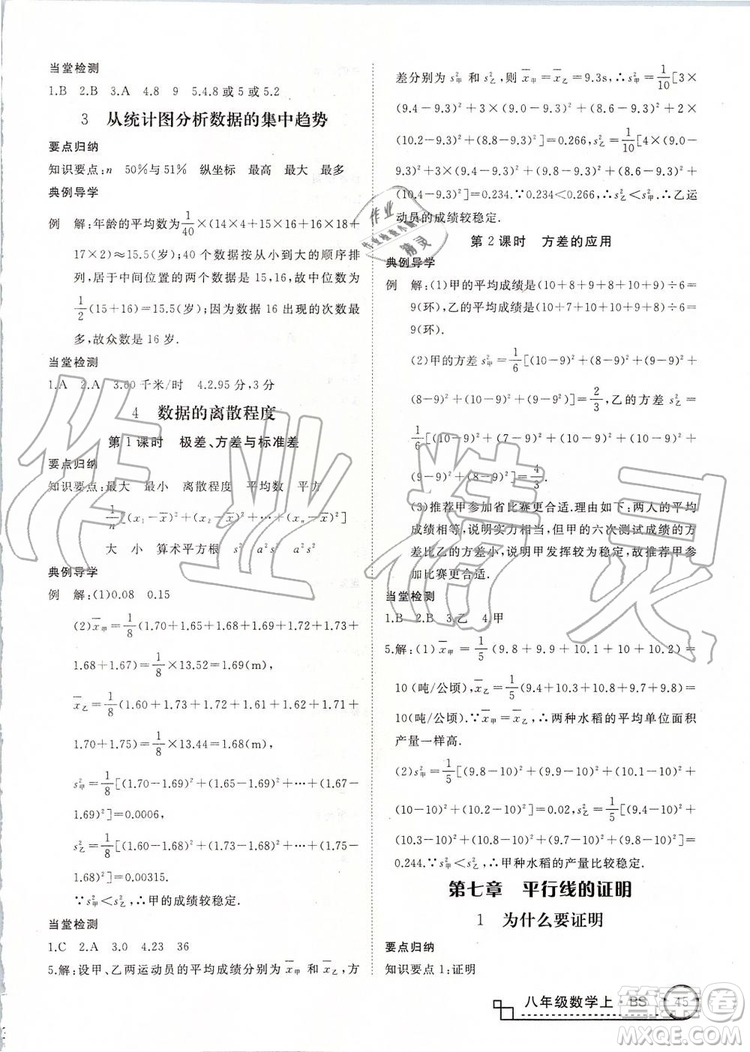 当堂检测
1.B 2.B 3.A 4.8 9 5.4.8或5或5.2
3 从统计图分析数据的集中趋势
要点归纳
知识要点:n 50%与51% 纵坐标 最高 最大 最多
典例导学
例 解:年龄的平均数为1/40×(14×4+15×16+16×18+
17×2)≈15.5(岁);40个数据从小到大的顺序排
列,居于中间位置的两个数据是15,16,故中位数是
1/2(15+16)=15.5(岁);因为数据16出现的次数最
多,故众数为16岁.
当堂检测
1.A 2.A 3.60千米/时 4.2.95分,3分
4 数据的离散程度
第1课时 极差、方差与标准差
要点归纳
知识要点:最大 最小 离散程度 平均数 平方
1/n[(x₁-x̄)²+(x₂-x̄)²+…+(xₙ-x̄)²]
大 小 算术平方根 s² a²s² a²s²
典例导学
例 解:(1)0.08 0.15
(2)x̄甲=1/8(1.70+1.65+1.68+1.69+1.72+1.73+
1.68+1.67)=1/8×13.52=1.69(m),
x̄乙=1/8(1.60+1.73+1.72+1.61+1.62+1.71+
1.70+1.75)=1/8×13.44=1.68(m).
s²甲=1/8[(1.70-1.69)²+(1.65-1.69)²+…+(1.67-
1.69)²]=0.0006,
s²乙=1/8[(1.60-1.68)²+(1.73-1.68)²+…+(1.75-
1.68)²]=0.00315.
∵s²甲<s²乙,∴甲的成绩较稳定.
当堂检测
1.C 2.A 3.0 4.23 36
5.解:设甲、乙两运动员的平均成绩分别为x̄甲和x̄乙,方
差分别为s²甲和s²乙,则x̄甲=x̄乙=9.3s,∴s²甲=1/6[3×
(9.4-9.3)²+(9.3-9.3)²+(8.6-9.3)²+
(9.7-9.3)²]=0.266,s²乙=1/6[2×
(10.4-9.3)²]=0.234.∵0.234<0.266,∴乙运
动员的成绩较稳定.
第2课时 方差的应用
典例导学
例 解:(1)甲的平均成绩是(10+8+9+8+10+9)÷6=
9(环),乙的平均成绩是(10+7+10+10+9+8)÷6=
9(环).
(2)甲的方差s²甲=1/6[(10-9)²+(8-9)²+(9-9)²+
(8-9)²+(10-9)²+(9-9)²]=2/3,乙的方差s²乙=
1/6[(10-9)²+(7-9)²+(10-9)²+(10-9)²+
(9-9)²+(8-9)²]=4/3.
(3)推荐甲参加省比赛更合适.理由如下:两人的平均
成绩相等,说明实力相当,但甲的六次测试成绩的方
差比乙的方差小,说明甲发挥较为稳定,故推荐甲参
加比赛更合适.
当堂检测
1.B 2.B 3.乙 4.甲
5.解:(1)x̄甲=1/5(9.8+9.9+10.1+10+10.2)=
10(吨/公顷),x̄乙=1/5(9.4+10.3+10.8+9.7+9.8)=
10(吨/公顷).∵x̄甲=x̄乙,∴两种水稻的平均单位面积
产量一样高.
(2)s²甲=1/5[(9.8-10)²+(9.9-10)²+(10.1-10)²+
(10-10)²+(10.2-10)²]=0.02,s²乙=1/5[(9.4-10)²+
(10.3-10)²+(10.8-10)²+(9.7-10)²+(9.8-10)²]=
0.244.∵s²甲<s²乙,∴甲种水稻的产量比较稳定.
第七章 平行线的证明
1 为什么要证明
要点归纳
知识要点1:证明
八年级数学上·BS
45
作业精灵
答案圈
MXQE.COM